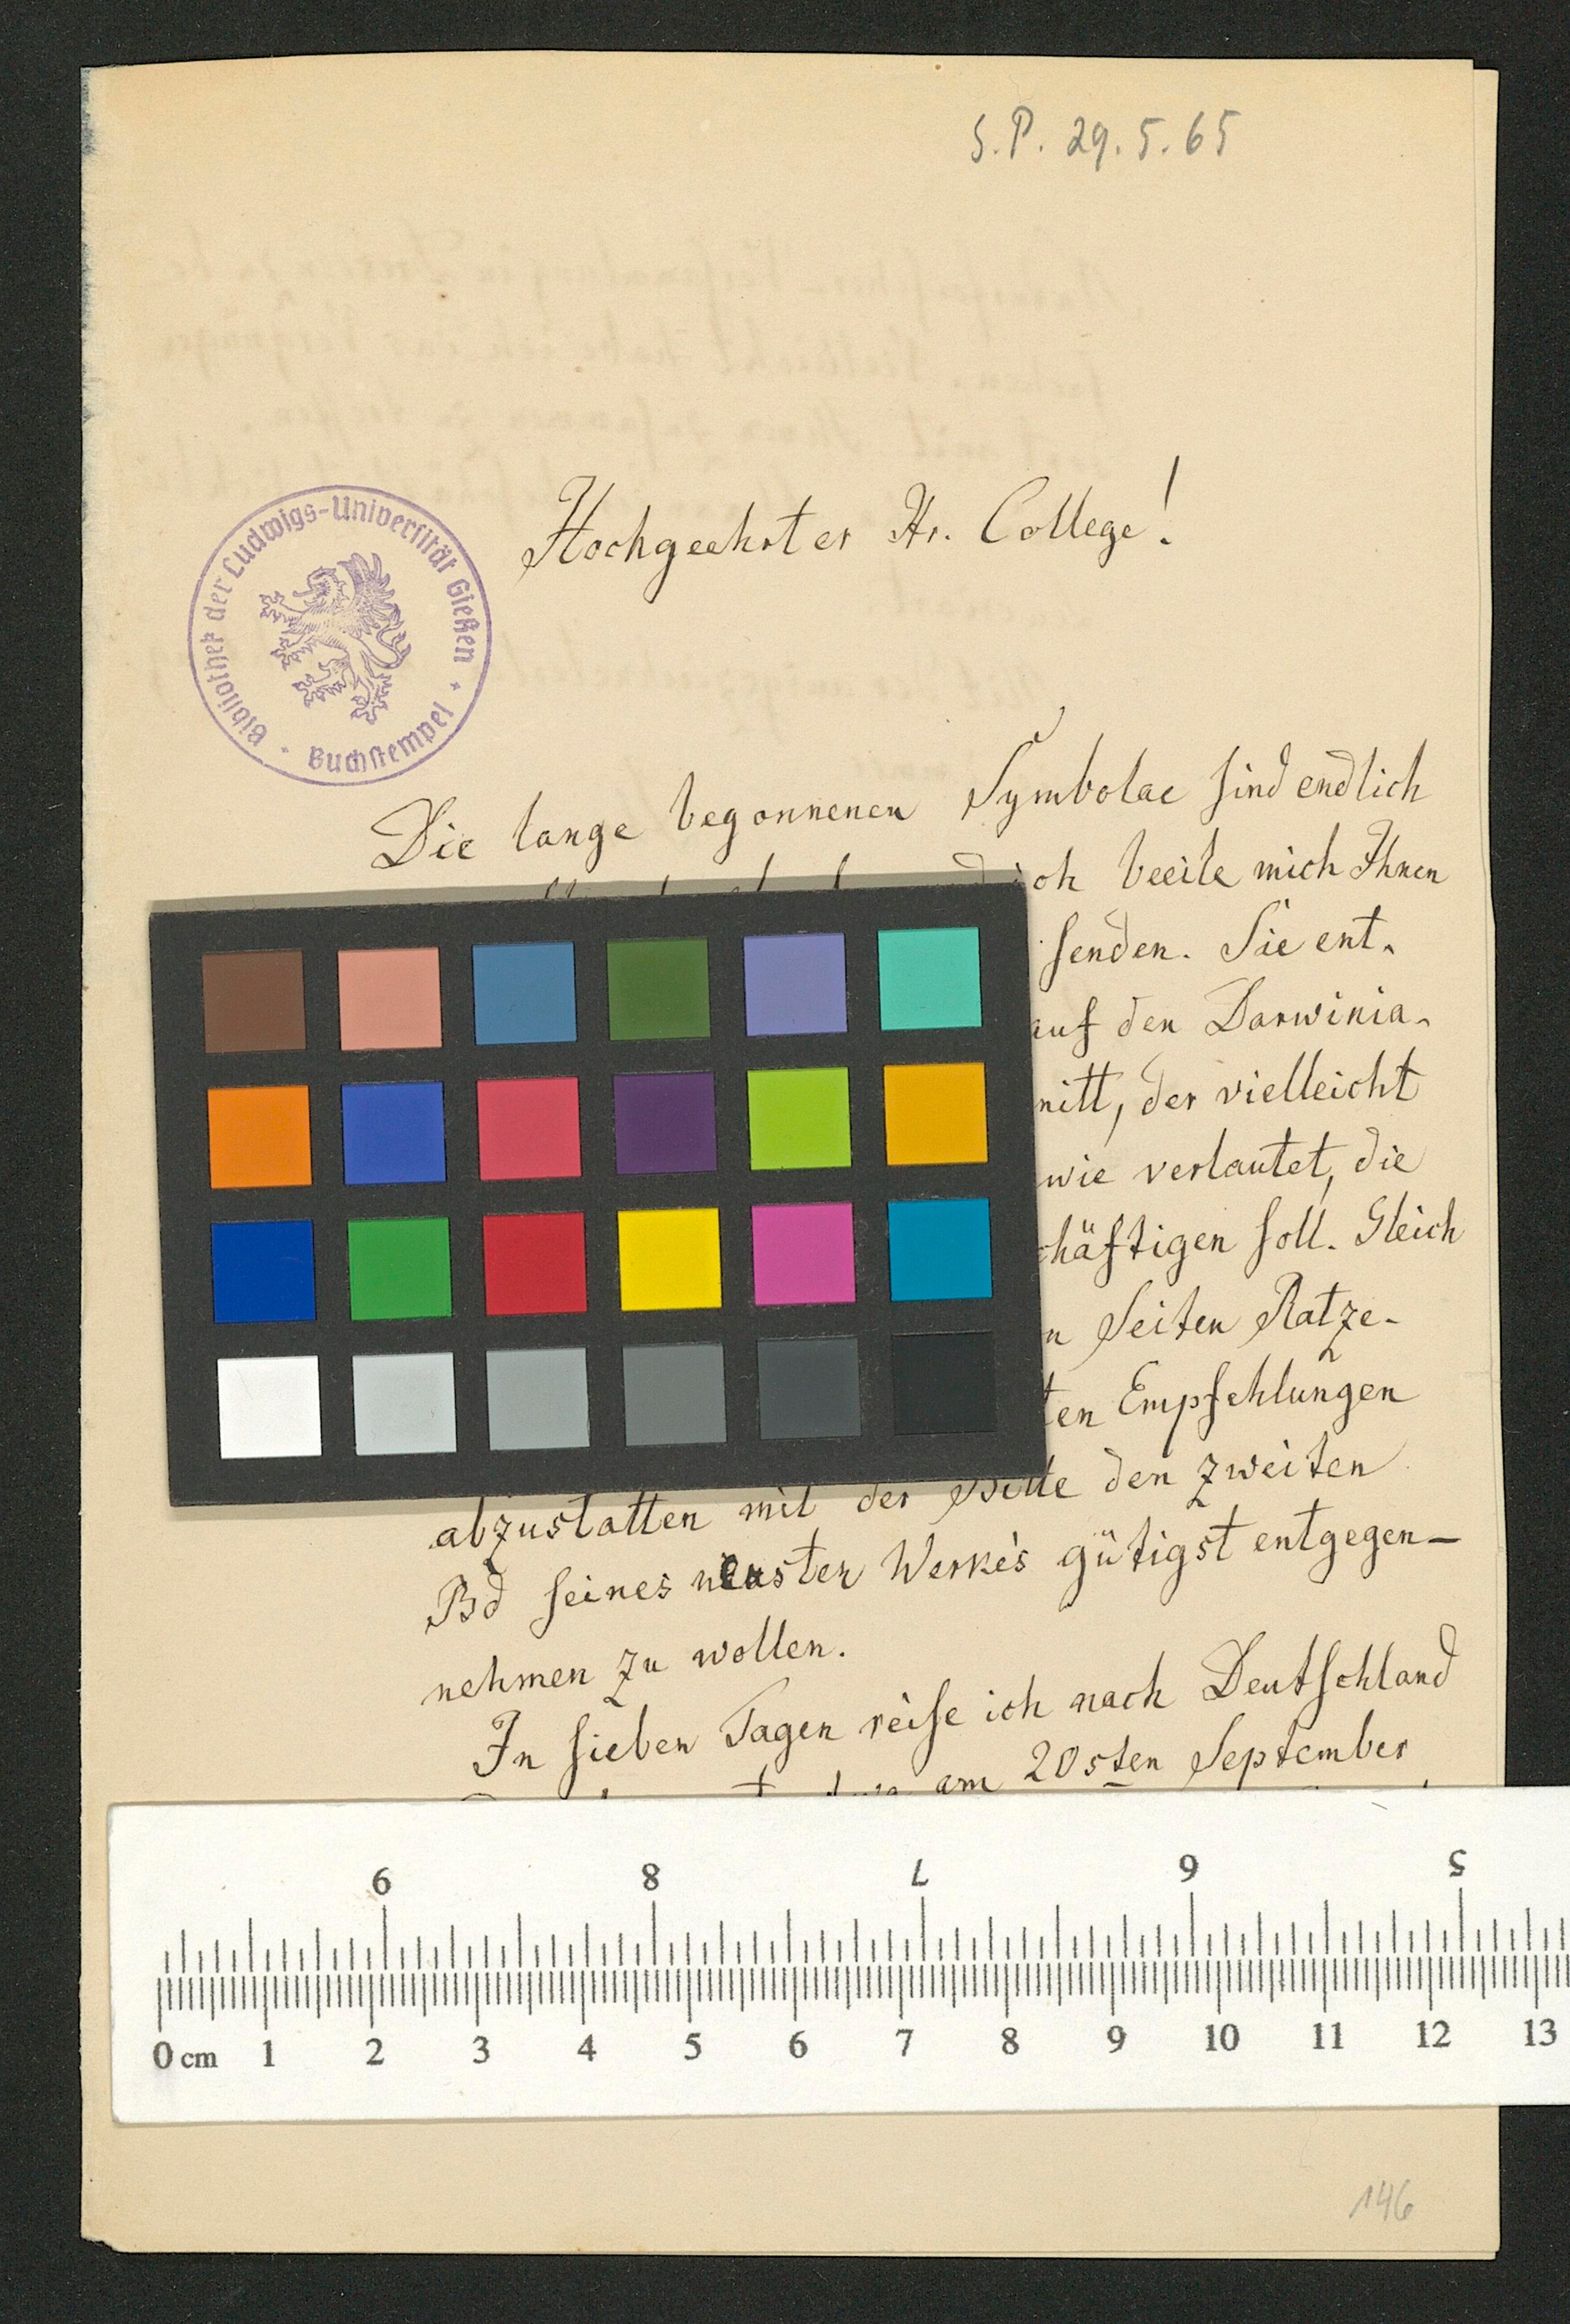 S.P. 29.5.65
Bibliothek der Ludwigs-Universität Gießen
Buchstempel
Hochgeehrter Hr. College!
Die lange begonnenen Symbolae sind endlich
ich beeile mich Ihnen
senden. Sie ent-
auf den Darwinia-
nitt, der vielleicht
wie verlautet, die
häftigen soll. Gleich
n Seiten Ratze-
ten Empfehlungen
abzustatten mit der Bitte den zweiten
Bd seines neusten Werkes gütigst entgegen-
nehmen zu wollen.
In sieben Tagen reise ich nach Deutschland
am 20sten September
9 8 7 6 5
0 cm 1 2 3 4 5 6 7 8 9 10 11 12 13
146